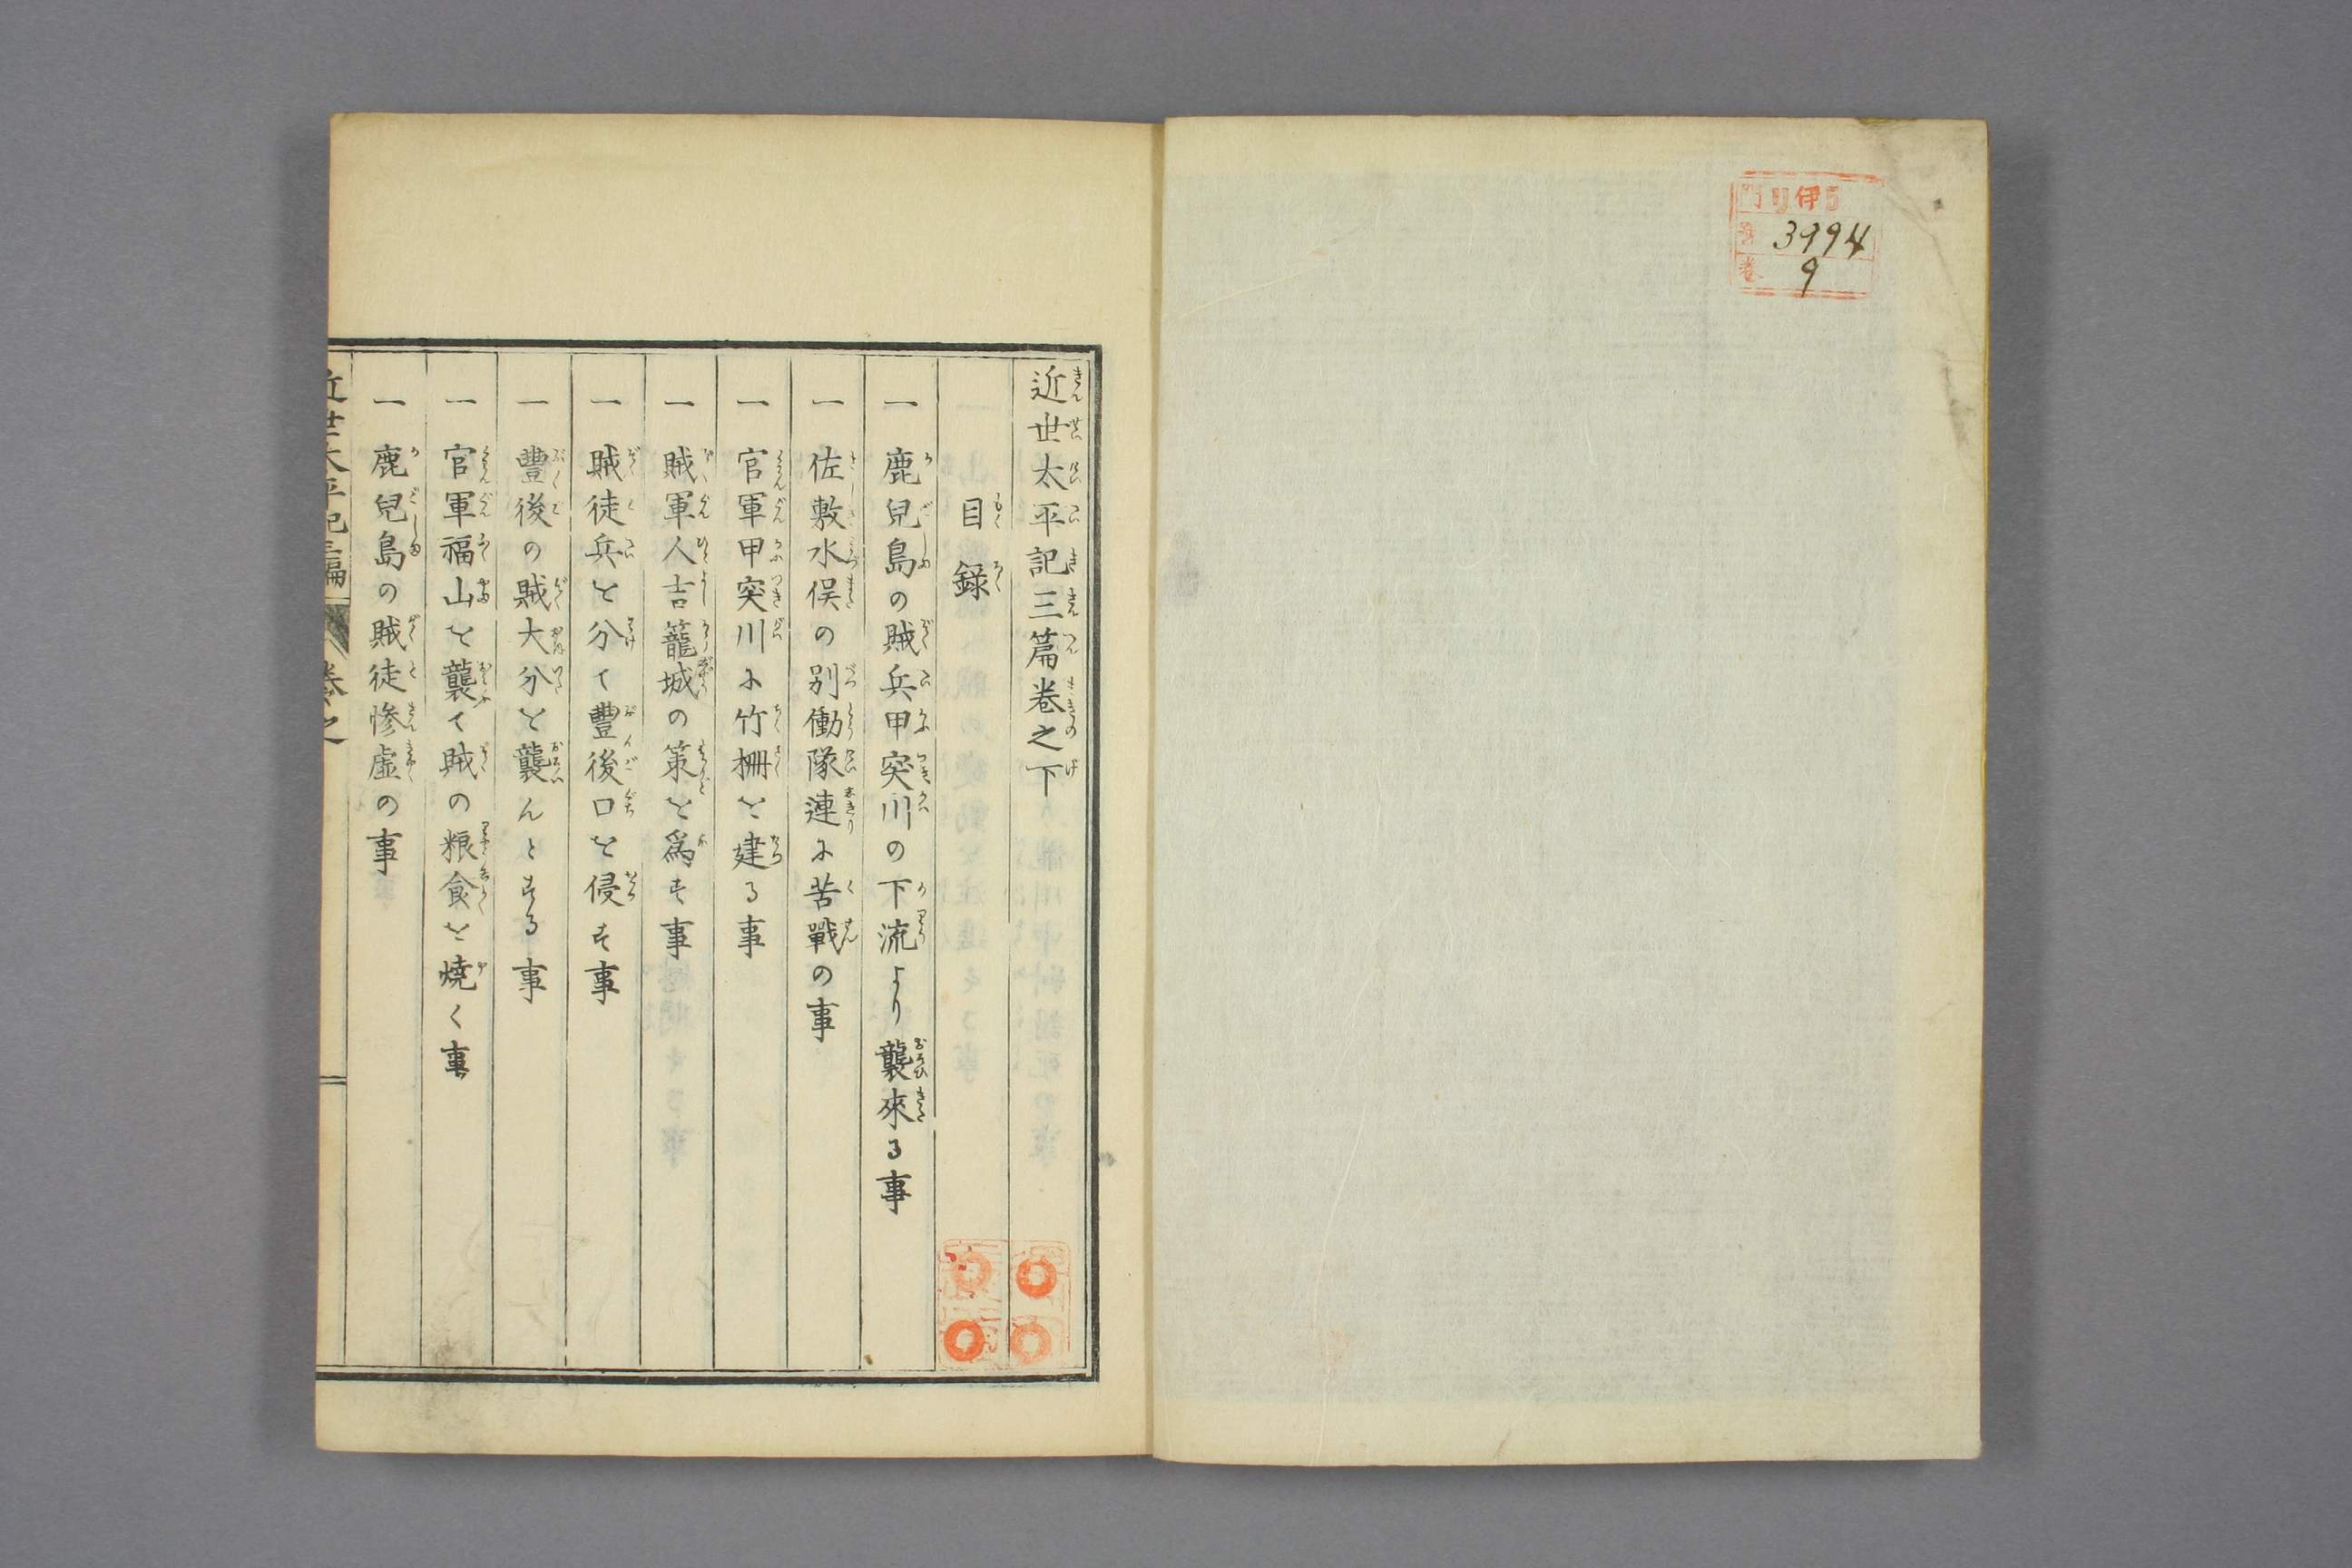 門 伊5
3994
卷 9
近世太平記三篇卷之下
目録
一 鹿兒島の賊兵甲突川の下流より襲來る事
一 佐敷水俣の别働隊連に苦戰の事
一 官軍甲突川に竹柵を建る事
一 賊軍人吉籠城の策を爲す事
一 賊徒兵を分て豐後口を侵す事
一 豐後の賊大分を襲んとする事
一 官軍福山を襲て賊の粮食を燒く事
一 鹿兒島の賊徒惨虐の事
近世太平記三編 卷之